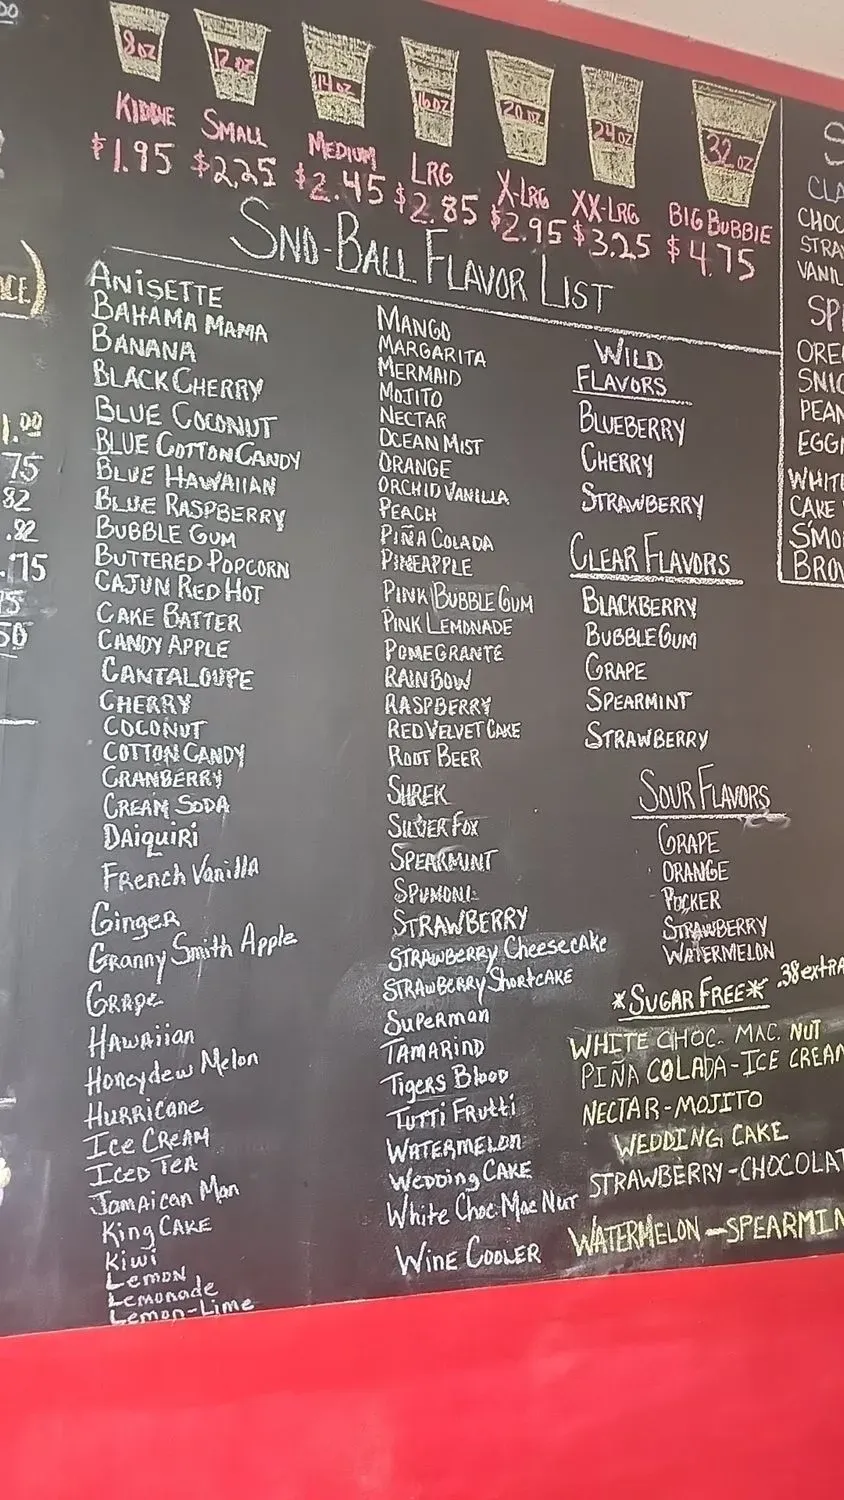 8oz 12 oz 14 oz 16oz 20 oz 24oz 32 oz
KIDDIE SMALL MEDIUM LRG X-LRG XX-LRG BIG BUBBIE
$1.95 $2.25 $2.45 $2.85 $2.95 $3.25 $4.75
SNO-BALL FLAVOR LIST
ANISETTE
BAHAMA MAMA
BANANA
BLACK CHERRY
BLUE COCONUT
BLUE COTTON CANDY
BLUE HAWAIIAN
BLUE RASPBERRY
BUBBLE GUM
BUTTERED POPCORN
CAJUN RED HOT
CAKE BATTER
CANDY APPLE
CANTALOUPE
CHERRY
COCONUT
COTTON CANDY
CRANBERRY
CREAM SODA
DAIQUIRI
French Vanilla
Ginger
Granny Smith Apple
Grape
HAWAiian
Honeydew Melon
Hurricane
Ice CREAM
ICED TEA
Jamaican Man
King CAKE
Kiwi
Lemon
Lemonade
Lemon-Lime
MANGO
MARGARITA
MERMAID
MOJITO
NECTAR
OCEAN MIST
ORANGE
ORCHID VANILLA
PEACH
PIÑA COLADA
PINEAPPLE
PINK BUBBLE GUM
PINK LEMONADE
POMEGRANTE
RAINBOW
RASPBERRY
RED VELVET CAKE
ROOT BEER
SHREK
SILVER FOX
SPEARMINT
SPUMONI
STRAWBERRY
STRAWBERRY CheeseCAKE
STRAWBERRY ShortCAKE
Superman
TAMARIND
Tigers Blood
Tutti Frutti
WATERMELON
Wedding CAKE
White Choc Mac Nut
Wine Cooler
WILD
FLAVORS
BLUEBERRY
CHERRY
STRAWBERRY
CLEAR FLAVORS
BLACKBERRY
BUBBLEGUM
GRAPE
SPEARMINT
STRAWBERRY
SOUR FLAVORS
GRAPE
ORANGE
PUCKER
STRAWBERRY
WATERMELON
*SUGAR FREE* .38 extra
WHITE CHOC. MAC. NUT
PIÑA COLADA-ICE CREAM
NECTAR-MOJITO
WEDDING CAKE
STRAWBERRY-CHOCOLAT
WATERMELON-SPEARMIN
CHOC
STRAW
VANIL
ORE
SNIC
PEAN
EGG
WHITE
CAKE
SMO
BRO
1.00
75
82
.82
.75
50